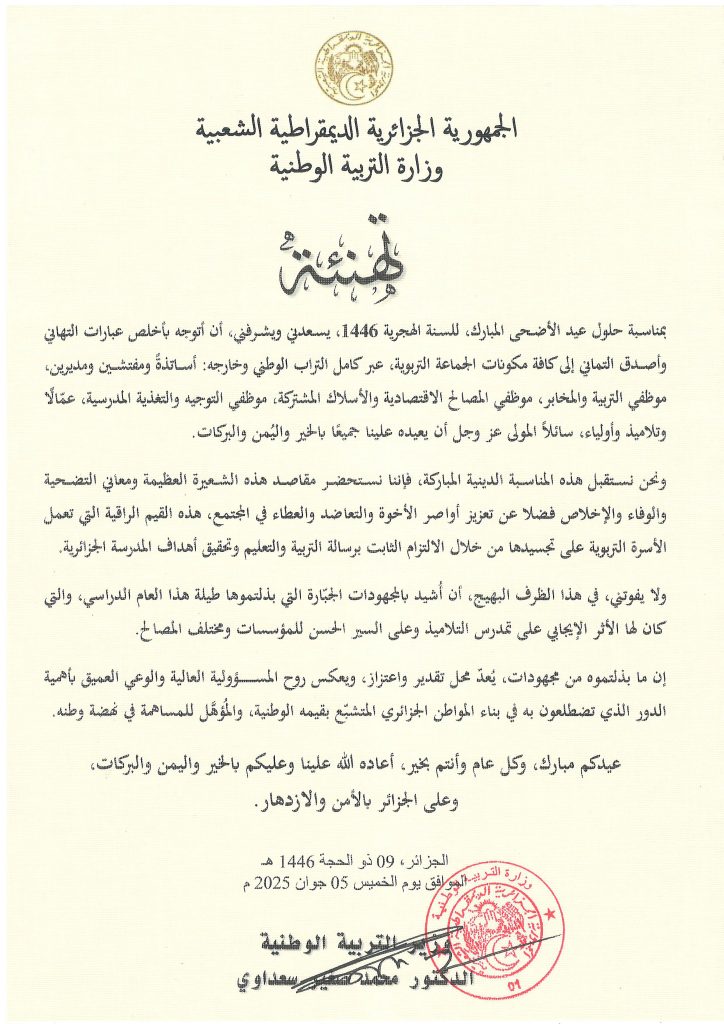 الجمهورية الجزائرية الديمقراطية الشعبية
وزارة التربية الوطنية
تهنئة
بمناسبة حلول عيد الأضحى المبارك، للسنة الهجرية 1446، يسعدني ويشرفني، أن أتوجه بأخلص عبارات التهاني
وأصدق التماني إلى كافة مكونات الجماعة التربوية، عبر كامل التراب الوطني وخارجه: أساتذةً ومفتشين ومديرين،
موظفي التربية والمخابر، موظفي المصالح الاقتصادية والأسلاك المشتركة، موظفي التوجيه والتغذية المدرسية، عمّالًا
وتلاميذ وأولياء، سائلاً المولى عز وجل أن يعيده علينا جميعًا بالخير واليُمن والبركات.
ونحن نستقبل هذه المناسبة الدينية المباركة، فإننا نستحضر مقاصد هذه الشعيرة العظيمة ومعاني التضحية
والوفاء والإخلاص فضلا عن تعزيز أواصر الأخوة والتعاضد والعطاء في المجتمع، هذه القيم الراقية التي تعمل
الأسرة التربوية على تجسيدها من خلال الالتزام الثابت برسالة التربية والتعليم وتحقيق أهداف المدرسة الجزائرية.
ولا يفوتني، في هذا الظرف البهيج، أن أُشيد بالمجهودات الجبّارة التي بذلتموها طيلة هذا العام الدراسي، والتي
كان لها الأثر الإيجابي على تمدرس التلاميذ وعلى السير الحسن للمؤسسات ومختلف المصالح.
إن ما بذلتموه من مجهودات، يُعدّ محل تقدير واعتزاز، ويعكس روح المسؤولية العالية والوعي العميق بأهمية
الدور الذي تضطلعون به في بناء المواطن الجزائري المتشبّع بقيمه الوطنية، والمُؤهَّل للمساهمة في نهضة وطنه.
عيدكم مبارك، وكل عام وأنتم بخير، أعاده الله علينا وعليكم بالخير واليمن والبركات،
وعلى الجزائر بالأمن والازدهار.
الجزائر، 09 ذو الحجة 1446 هـ
الموافق يوم الخميس 05 جوان 2025 م
وزير التربية الوطنية
الدكتور محمد صغير سعداوي
وزارة التربية الوطنية
01